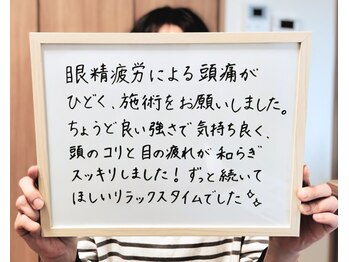 眼精疲労による頭痛が
ひどく、施術をお願いしました。
ちょうど良い強さで気持ち良く、
頭のコリと目の疲れが和らぎ
スッキリしました！ずっと続いて
ほしいリラックスタイムでした✧